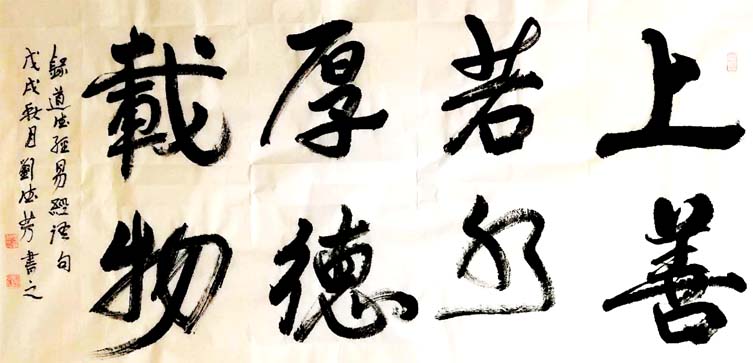 上善
若水
厚德
載物
錄道德經易經語句
戊戌秋月劉德芳書之